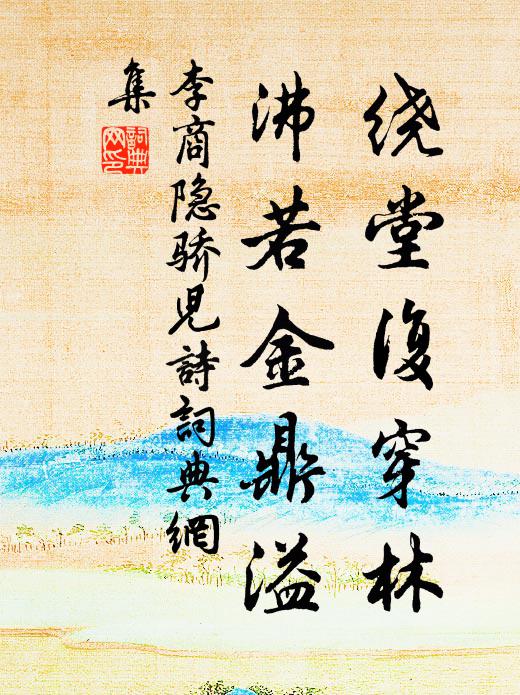 绕堂复穿林
沸若金鼎溢
李商隐骄儿詩詞典網
集
詞典網印